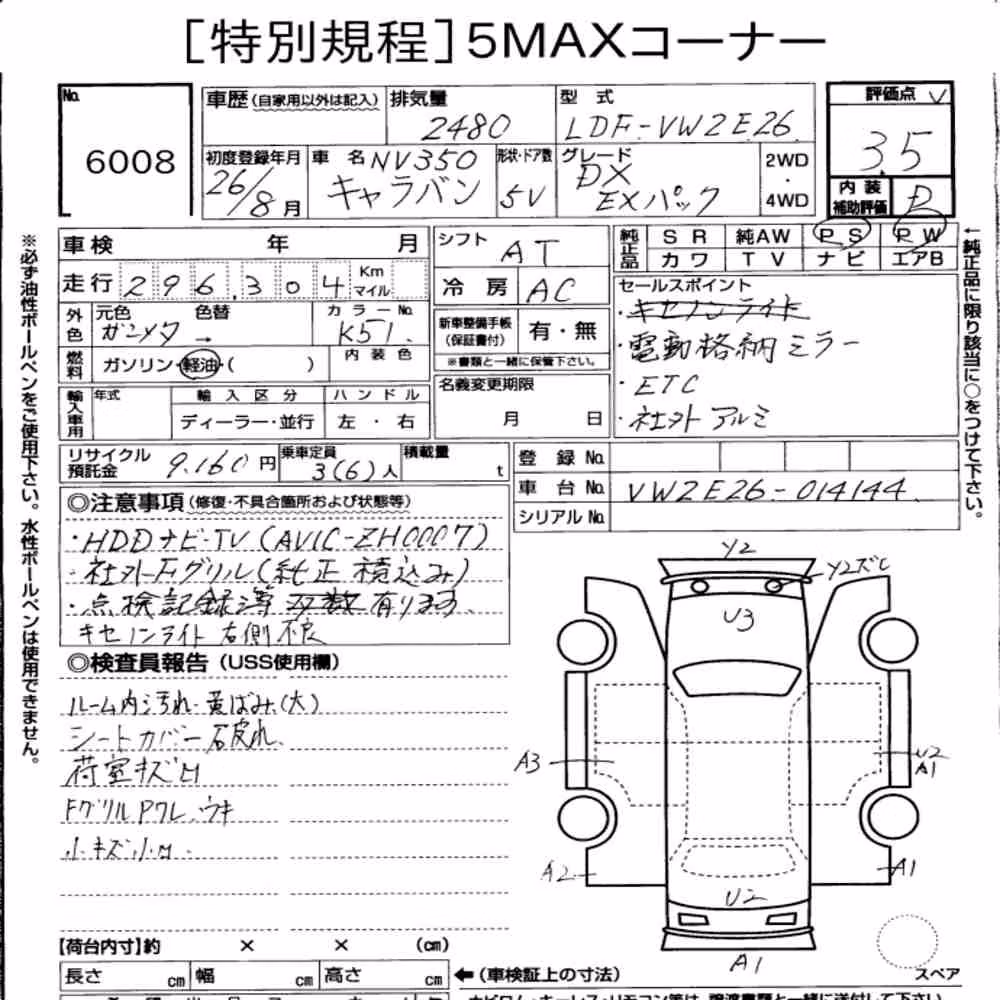 [特別規程]5MAXコーナー
No.
6008
車歴(自家用以外は記入)
排気量
2480
型式
LDF-VW2E26
評価点
3.5
初度登録年月
26/8月
車名
NV350
キャラバン
形状・ドア数
5V
グレード
DX
EXパック
2WD
・
4WD
内装
補助評価
D
車検 年 月
走行 296,304 Km マイル
外色
元色
ガンメタ →
色替
カラーNo.
K51
燃料
ガソリン・軽油・( )
内装色
輸入車用
年式
輸入区分
ディーラー・並行
ハンドル
左・右
シフト
AT
冷房
AC
新車整備手帳
(保証書付)
有・無
※書類と一緒に保管下さい。
名義変更期限
月 日
純正品
SR 純AW PS PW
カワ TV ナビ エアB
セールスポイント
・キセノンライト
・電動格納ミラー
・ETC
・社外アルミ
リサイクル
預託金
9,160円
乗車定員
3(6)人
積載量
t
登録No.
車台No.
VW2E26-014144
シリアルNo.
◎注意事項(修復・不具合箇所および状態等)
・HDDナビ・TV(AVIC-ZH0007)
・社外Fグリル(純正積込み)
・点検記録簿 双数有ります
キセノンライト右側不良
◎検査員報告(USS使用欄)
ルーム内汚れ・黄ばみ(大)
シートカバー破れ
荷室キズ凹
Fグリルワレ、ウキ
小キズ小凹
Y2
Y2ズレ
U3
A3
U2
A1
A2
A1
U2
A1
スペア
【荷台内寸】約 × × (cm)
長さ cm 幅 cm 高さ cm
←(車検証上の寸法)
※必ず油性ボールペンをご使用下さい。水性ボールペンは使用できません。
←純正品に限り該当に○をつけて下さい。